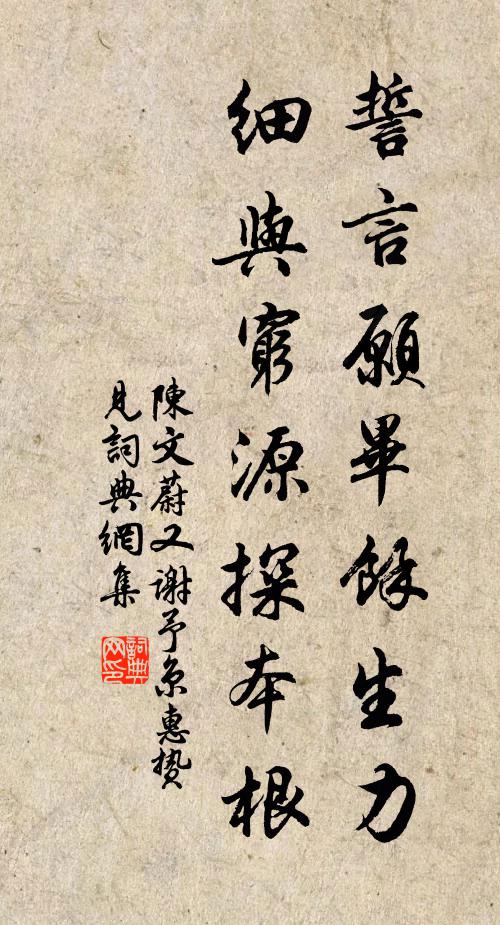 誓言願畢餘生力
細與窮源探本根
陳文蔚又謝予京惠贄
見詞典網集
詞典網印